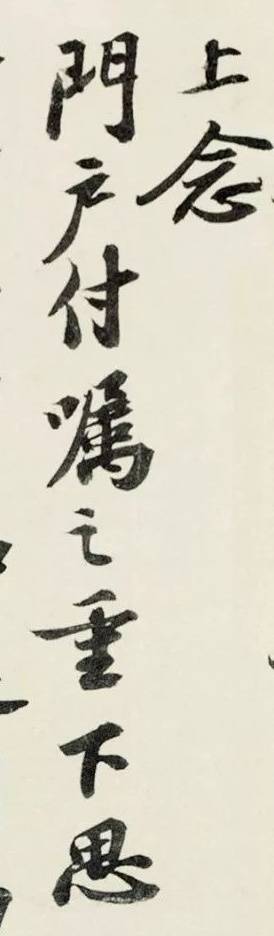 上念
門户付囑之重下思